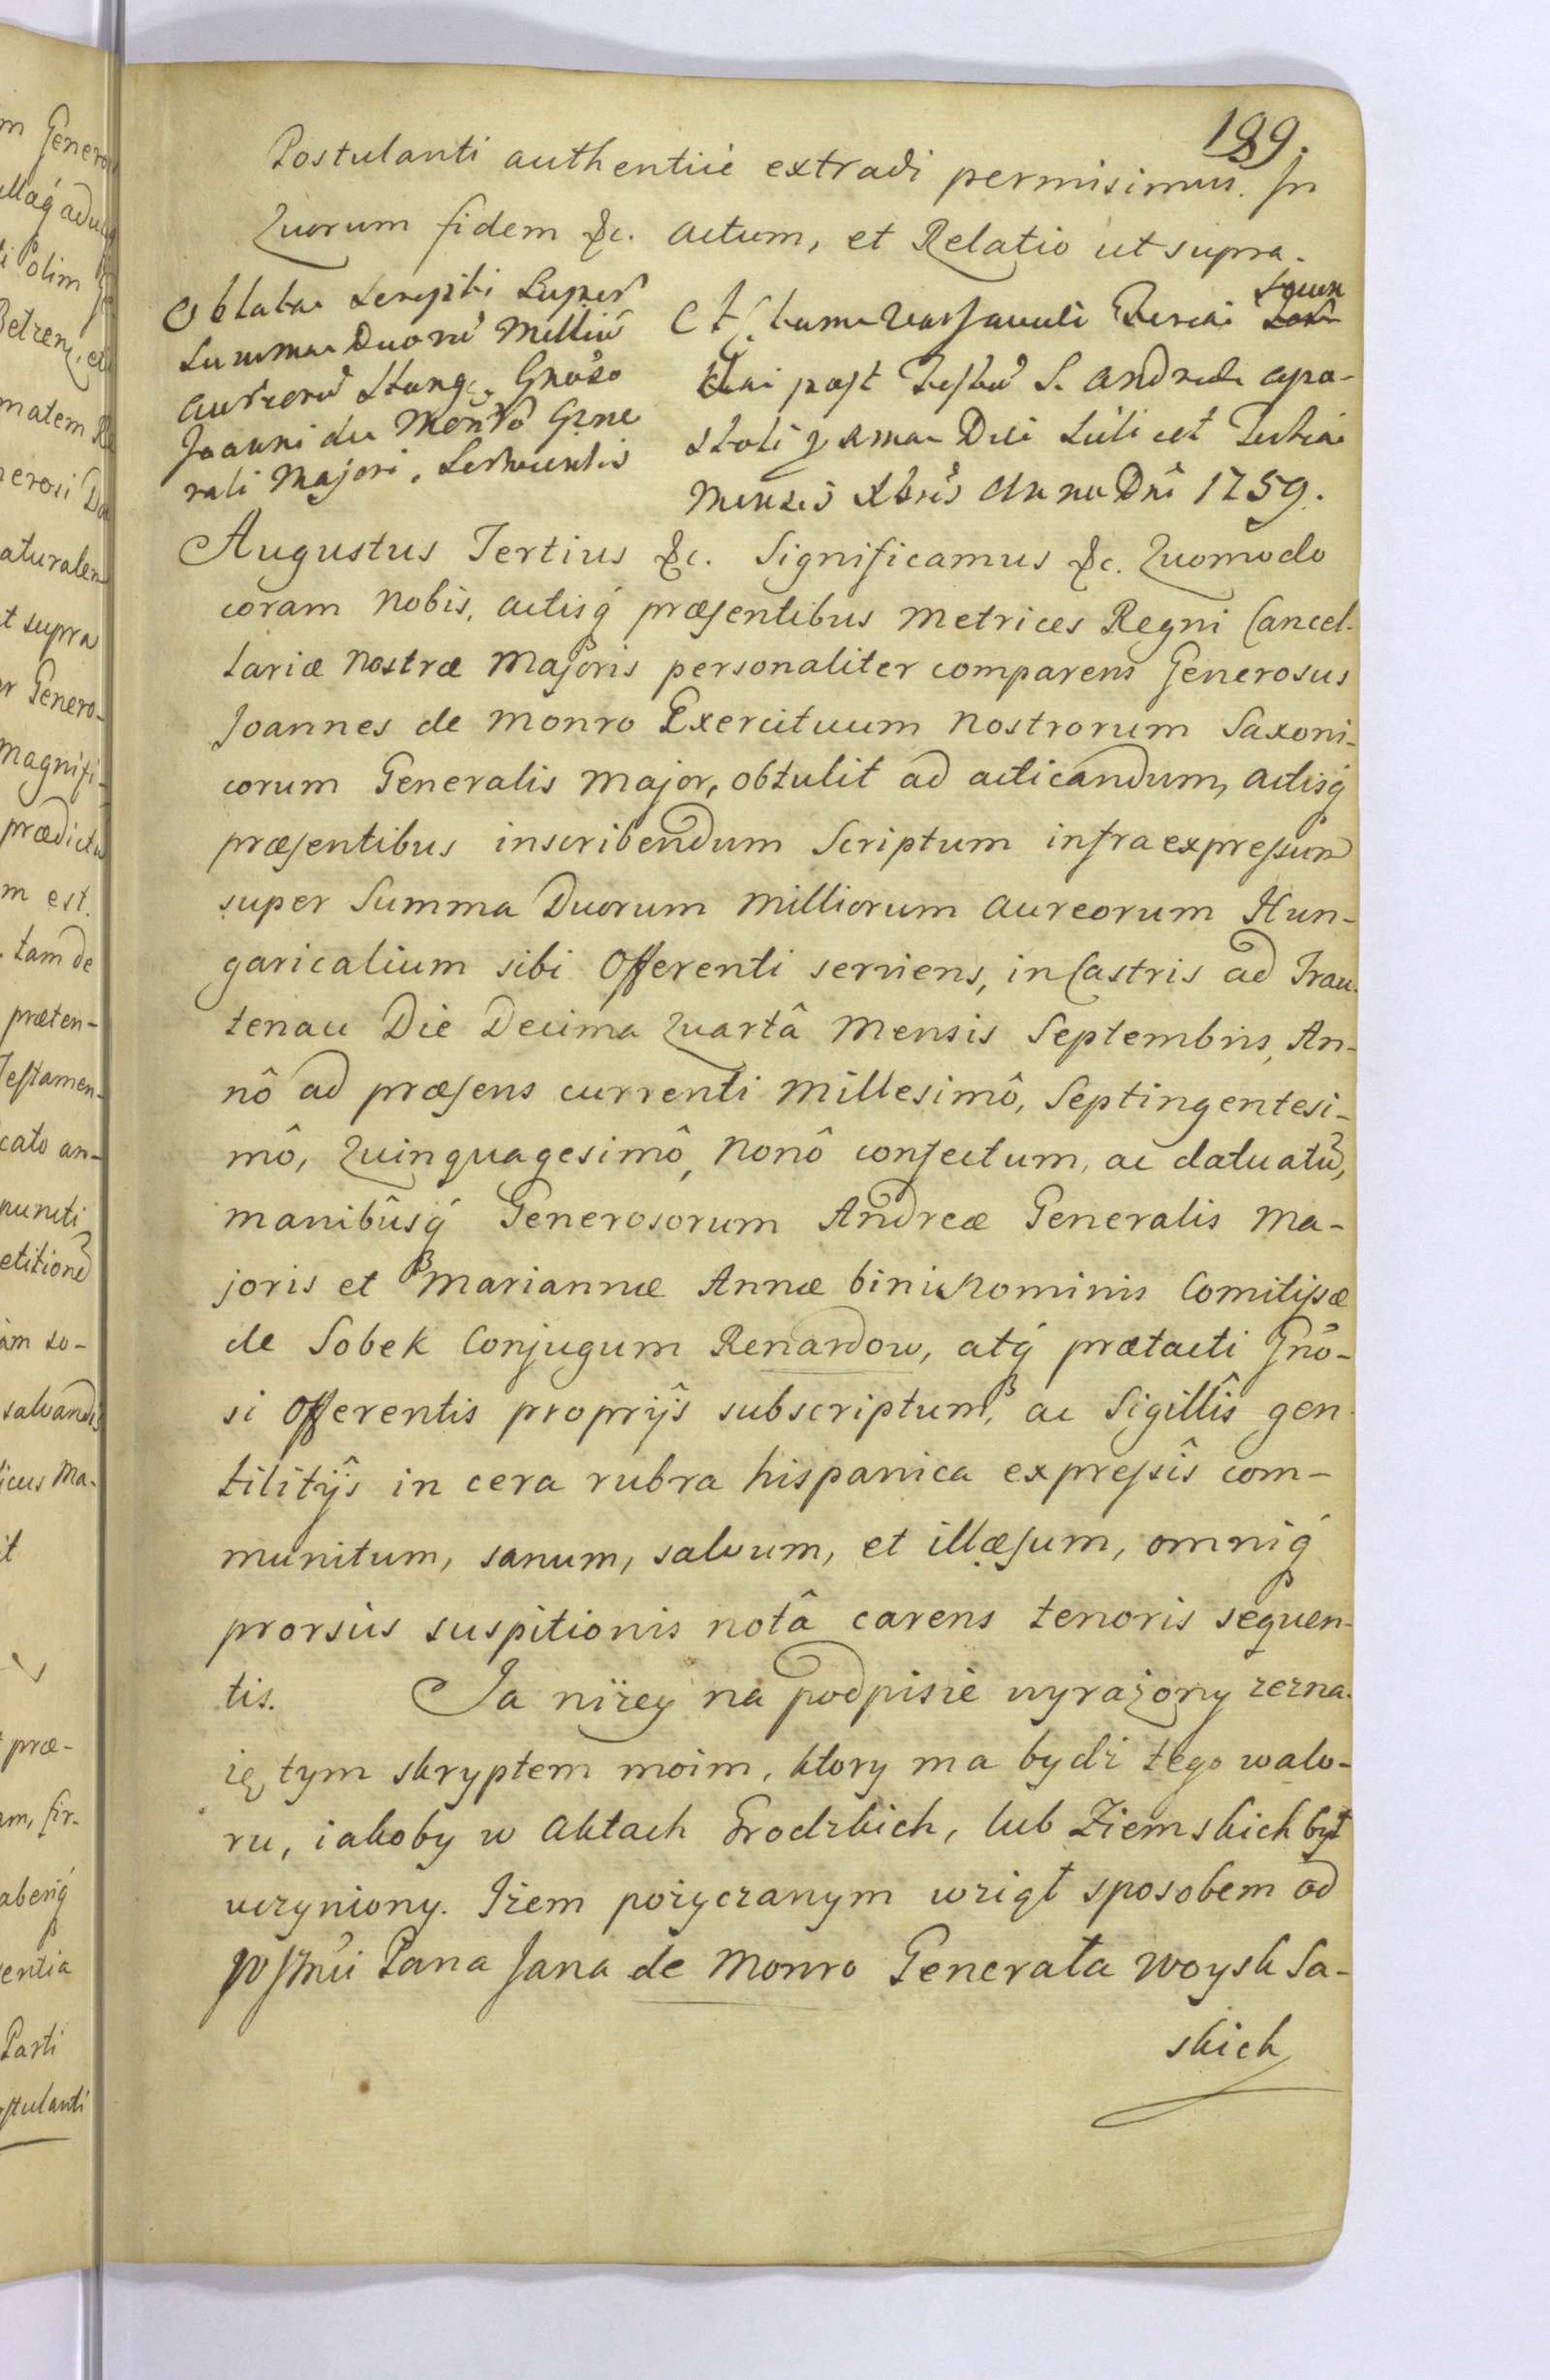 189.
Postulanti authentice extradi permisimus. In
Quorum fidem &c. actum, et Relatio ut supra.
Oblata Scripti Super
Summa Duorũ Milliũ
Aureorũ Hung: Gnõso
Joanni de Monro Gene
rali Majori, Servientis
Actum Varsaviæ Feria Secun
da post Festũ S. Andreæ Apo-
stoli proxima Die scilicet Tertia
Mensis Xbris Anno Dñi 1759.
Augustus Tertius &c. Significamus &c. Quomodo
coram Nobis, actisq́ præsentibus Metrices Regni Cancel-
lariæ Nostræ Majoris personaliter comparens Generosus
Joannes de Monro Exercituum Nostrorum Saxoni-
corum Generalis Major, obtulit ad acticandum, actisq́
præsentibus inscribendum Scriptum infraexpressum
super Summa Duorum Milliorum Aureorum Hun-
garicalium sibi Offerenti serviens, in Castris ad Trau-
tenau Die Decima Quartâ Mensis Septembris, An-
nô ad præsens currenti Millesimô, Septingentesi-
mô, Quinquagesimô, Nonô confectum, ac datuatũ,
manibûsq́ Generosorum Andreæ Generalis Ma-
joris et Mariannæ Annæ bini Nominis Comitissæ
de Sobek Conjugum Renardow, atq́ prætacti Gnõ-
si Offerentis proprijs subscriptum, ac Sigillîs gen-
tilitijs in cera rubra hispanica expressîs com-
munitum, sanum, salvum, et illæsum, omniq́
prorsus suspitionis notâ carens tenoris sequen-
tis. Ja niżey na podpisie wyrażony zezna-
ię tym skryptem moim, ktory ma bydź tego walo-
ru, iakoby w Aktach Grodzkich, lub Ziemskich był
uczyniony. Iżem pożyczanym wziął sposobem od
Pana Jana de Monro Generała Woysk Sa-
skich